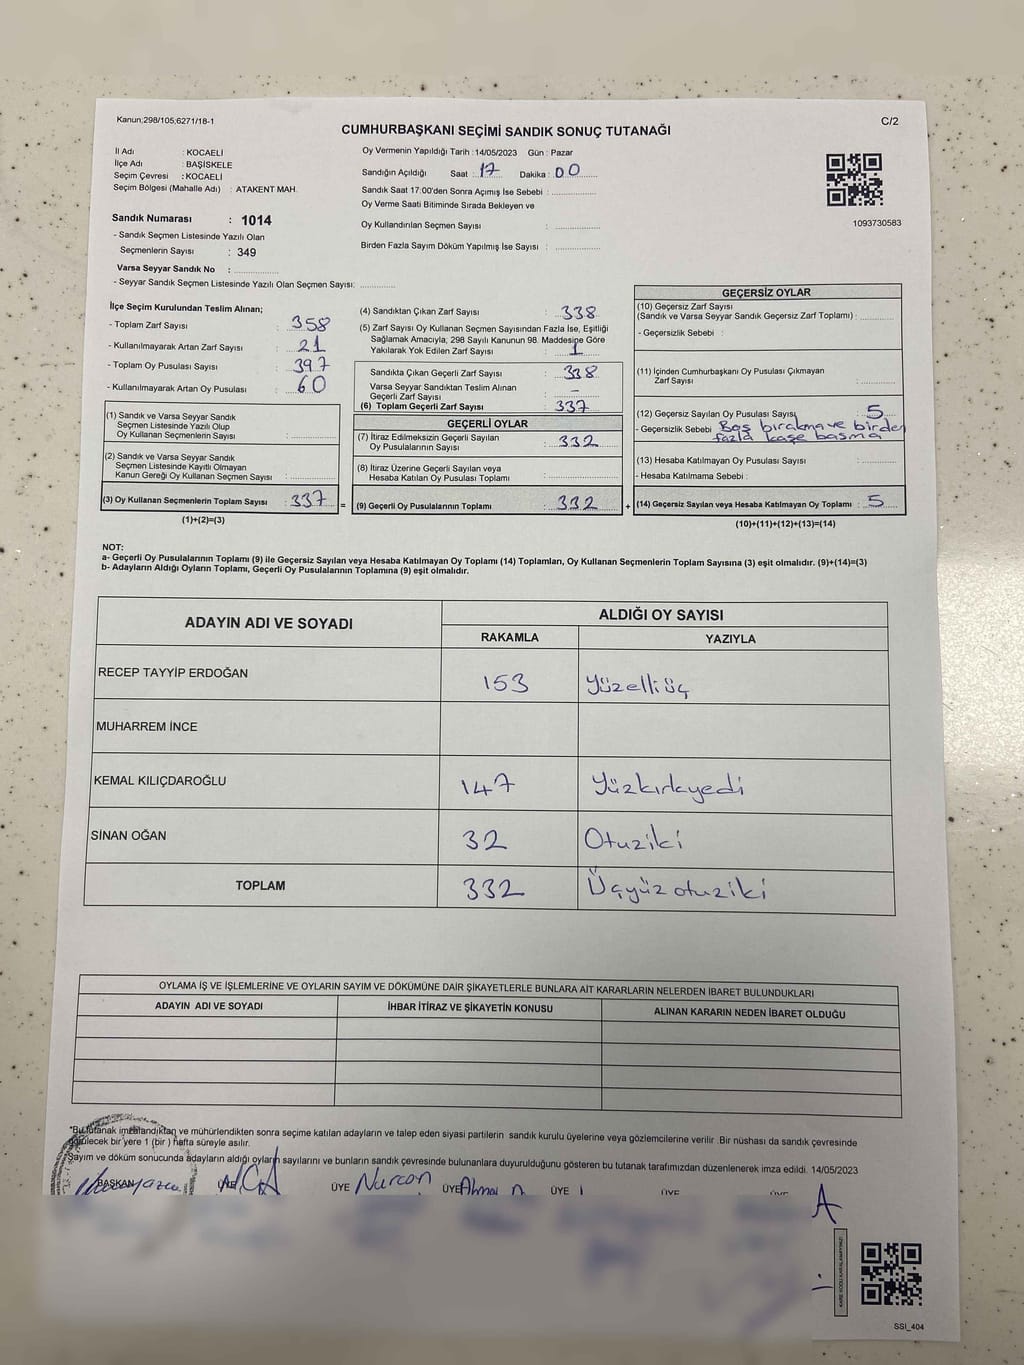 Kanun;298/105;6271/18-1
C/2
CUMHURBAŞKANI SEÇİMİ SANDIK SONUÇ TUTANAĞI
İl Adı : KOCAELİ
İlçe Adı : BAŞİSKELE
Seçim Çevresi : KOCAELİ
Seçim Bölgesi (Mahalle Adı) : ATAKENT MAH.
Sandık Numarası : 1014
- Sandık Seçmen Listesinde Yazılı Olan
Seçmenlerin Sayısı : 349
Varsa Seyyar Sandık No :
- Seyyar Sandık Seçmen Listesinde Yazılı Olan Seçmen Sayısı:
Oy Vermenin Yapıldığı Tarih :14/05/2023 Gün : Pazar
Sandığın Açıldığı Saat : 17 Dakika : 00
Sandık Saat 17:00'den Sonra Açımış İse Sebebi :
Oy Verme Saati Bitiminde Sırada Bekleyen ve
Oy Kullandırılan Seçmen Sayısı :
Birden Fazla Sayım Döküm Yapılmış İse Sayısı :
1093730583
İlçe Seçim Kurulundan Teslim Alınan;
- Toplam Zarf Sayısı : 358
- Kullanılmayarak Artan Zarf Sayısı : 21
- Toplam Oy Pusulası Sayısı : 397
- Kullanılmayarak Artan Oy Pusulası : 60
(1) Sandık ve Varsa Seyyar Sandık
Seçmen Listesinde Yazılı Olup
Oy Kullanan Seçmenlerin Sayısı :
(2) Sandık ve Varsa Seyyar Sandık
Seçmen Listesinde Kayıtlı Olmayan
Kanun Gereği Oy Kullanan Seçmen Sayısı :
(3) Oy Kullanan Seçmenlerin Toplam Sayısı : 337 =
(1)+(2)=(3)
(4) Sandıktan Çıkan Zarf Sayısı : 338
(5) Zarf Sayısı Oy Kullanan Seçmen Sayısından Fazla İse, Eşitliği
Sağlamak Amacıyla, 298 Sayılı Kanunun 98. Maddesine Göre
Yakılarak Yok Edilen Zarf Sayısı : 1
Sandıkta Çıkan Geçerli Zarf Sayısı : 338
Varsa Seyyar Sandıktan Teslim Alınan
Geçerli Zarf Sayısı : -
(6) Toplam Geçerli Zarf Sayısı : 337
GEÇERLİ OYLAR
(7) İtiraz Edilmeksizin Geçerli Sayılan
Oy Pusulalarının Sayısı : 332
(8) İtiraz Üzerine Geçerli Sayılan veya
Hesaba Katılan Oy Pusulası Toplamı :
(9) Geçerli Oy Pusulalarının Toplamı : 332 +
GEÇERSİZ OYLAR
(10) Geçersiz Zarf Sayısı
(Sandık ve Varsa Seyyar Sandık Geçersiz Zarf Toplamı) :
- Geçersizlik Sebebi :
(11) İçinden Cumhurbaşkanı Oy Pusulası Çıkmayan
Zarf Sayısı :
(12) Geçersiz Sayılan Oy Pusulası Sayısı : 5
- Geçersizlik Sebebi Boş bırakma ve birden
fazla kaşe basma
(13) Hesaba Katılmayan Oy Pusulası Sayısı :
- Hesaba Katılmama Sebebi :
(14) Geçersiz Sayılan veya Hesaba Katılmayan Oy Toplamı : 5
(10)+(11)+(12)+(13)=(14)
NOT:
a- Geçerli Oy Pusulalarının Toplamı (9) ile Geçersiz Sayılan veya Hesaba Katılmayan Oy Toplamı (14) Toplamları, Oy Kullanan Seçmenlerin Toplam Sayısına (3) eşit olmalıdır. (9)+(14)=(3)
b- Adayların Aldığı Oyların Toplamı, Geçerli Oy Pusulalarının Toplamına (9) eşit olmalıdır.
ADAYIN ADI VE SOYADI
ALDIĞI OY SAYISI
RAKAMLA YAZIYLA
RECEP TAYYİP ERDOĞAN 153 Yüzelliüç
MUHARREM İNCE
KEMAL KILIÇDAROĞLU 147 Yüzkırkyedi
SİNAN OĞAN 32 Otuziki
TOPLAM 332 Üçyüzotuziki
OYLAMA İŞ VE İŞLEMLERİNE VE OYLARIN SAYIM VE DÖKÜMÜNE DAİR ŞİKAYETLERLE BUNLARA AİT KARARLARIN NELERDEN İBARET BULUNDUKLARI
ADAYIN ADI VE SOYADI İHBAR İTİRAZ VE ŞİKAYETİN KONUSU ALINAN KARARIN NEDEN İBARET OLDUĞU
*Bu tutanak imzalandıktan ve mühürlendikten sonra seçime katılan adayların ve talep eden siyasi partilerin sandık kurulu üyelerine veya gözlemcilerine verilir .Bir nüshası da sandık çevresinde
görülecek bir yere 1 (bir ) hafta süreyle asılır.
Sayım ve döküm sonucunda adayların aldığı oyların sayılarını ve bunların sandık çevresinde bulunanlara duyurulduğunu gösteren bu tutanak tarafımızdan düzenlenerek imza edildi. 14/05/2023
BAŞKAN ÜYE ÜYE Nurcan ÜYE ÜYE ÜYE ÜYE
SSI_404